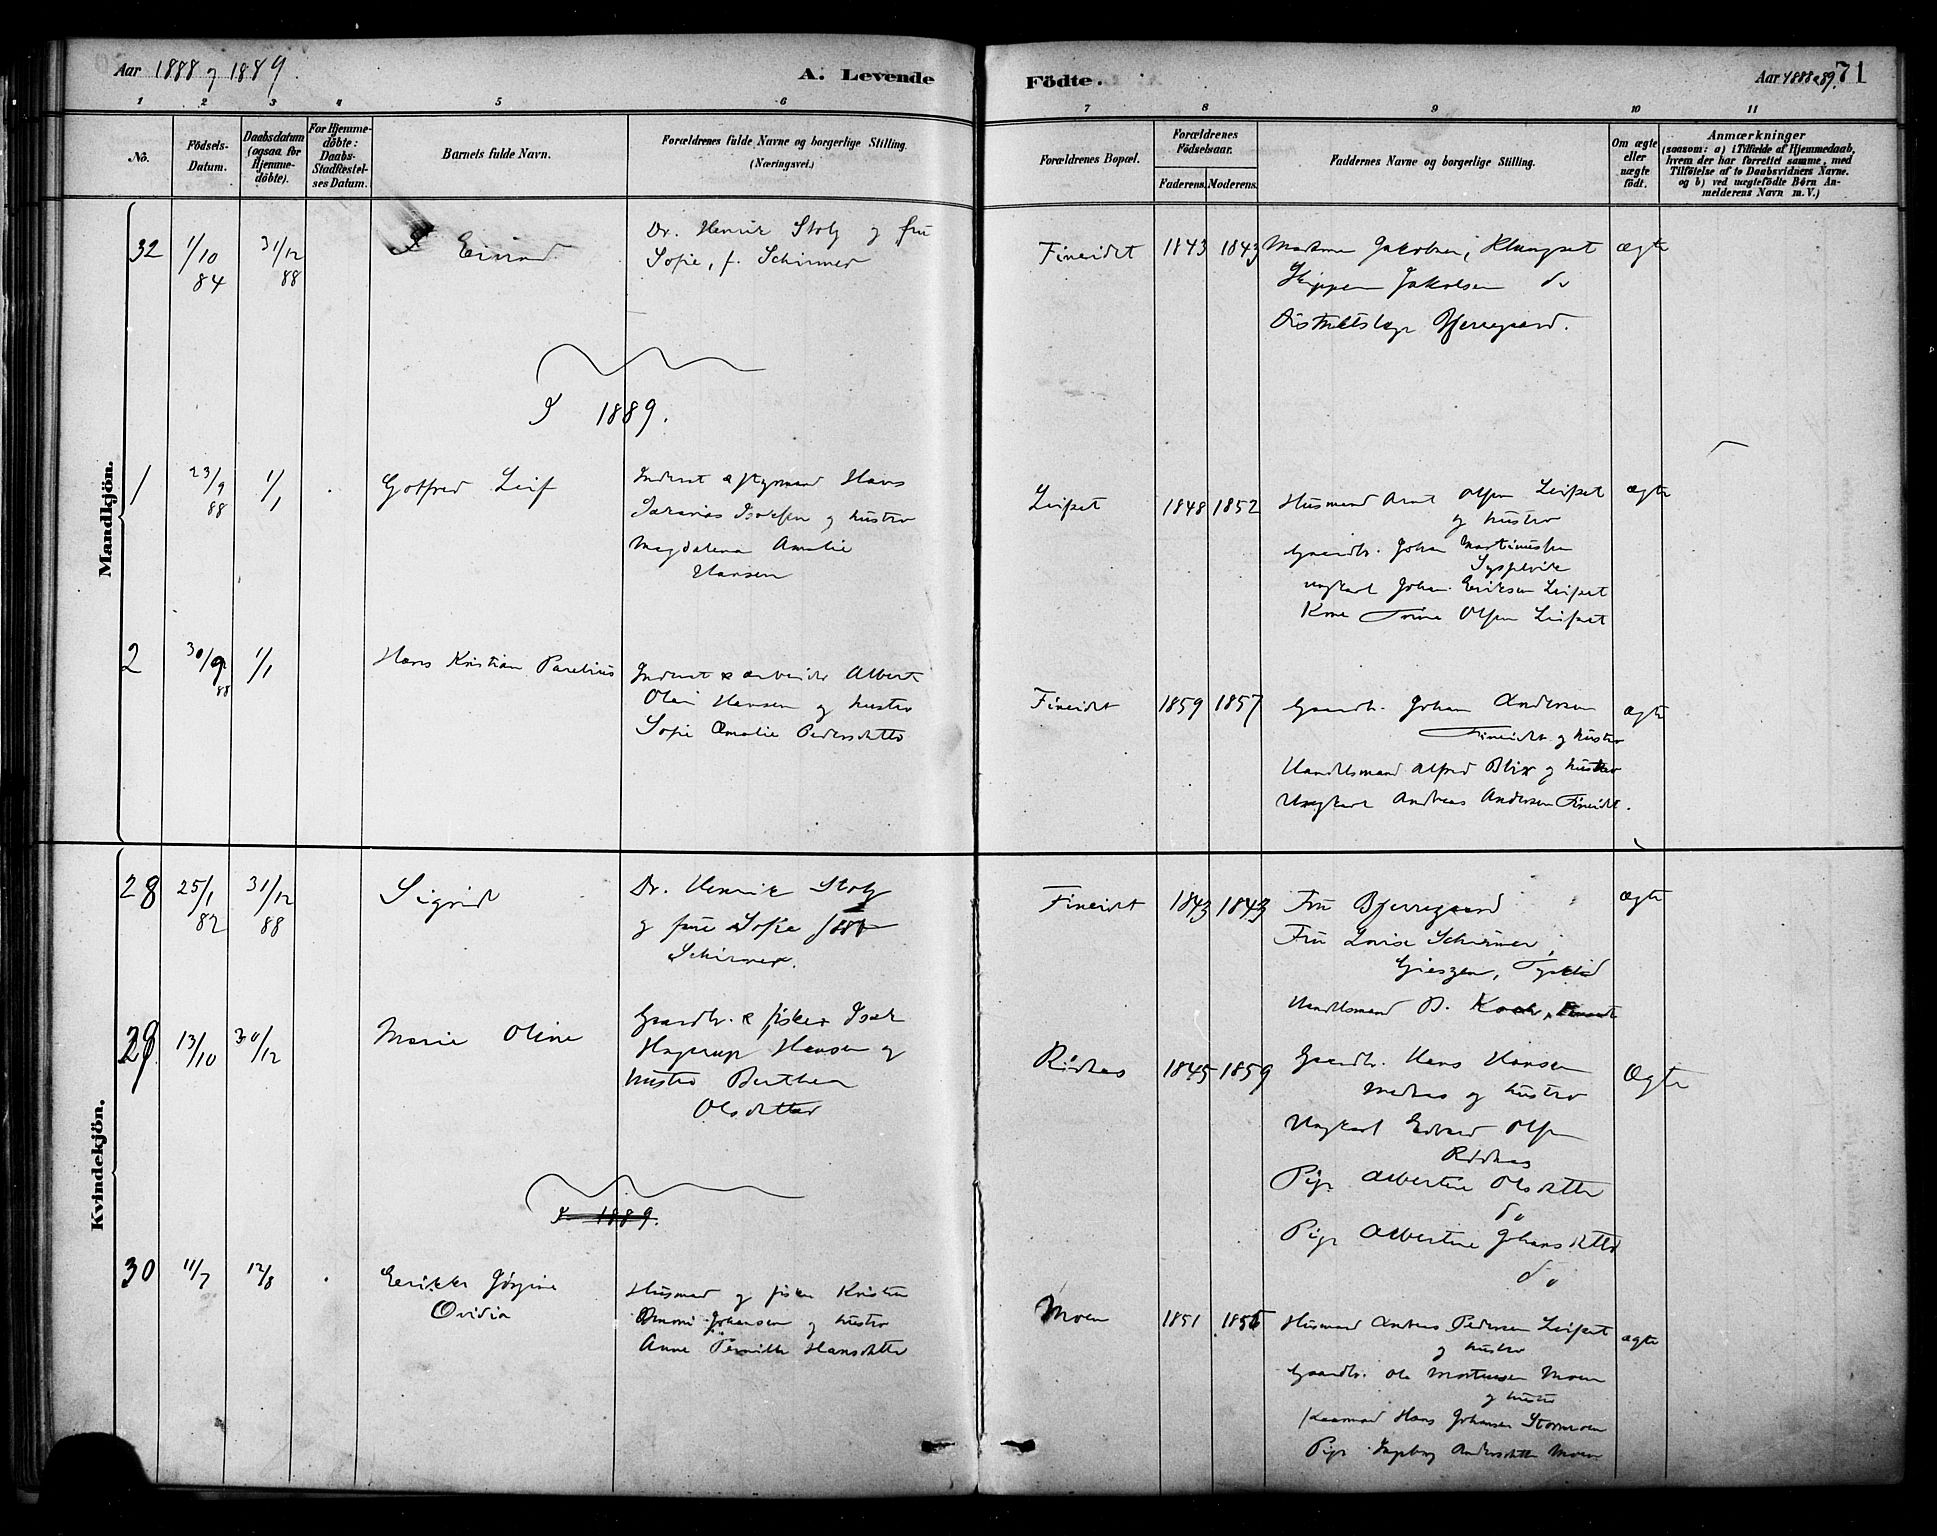 Aar 1888 og 1889.
A. Levende Födte.
Aar 1888 & 89. 71
1 2 3 4 5 6 7 8 9 10 11
No.
Födsels-Datum.
Daabsdatum (ogsaa for Hjemme-döbte).
For Hjemme-döbte: Daabs-Stadfæstel-ses Datum.
Barnets fulde Navn.
Forældrenes fulde Navne og borgerlige Stilling.
(Næringsvei.)
Forældrenes Bopæl.
Forældrenes Födselsaar.
Faderens. Moderens.
Faddernes Navne og borgerlige Stilling.
Om ægte eller uægte födt.
Anmærkninger
(saasom: a) i Tilfælde af Hjemmedaab,
hvem der har forrettet samme, med
Tilföielse af to Daabsvidners Navne.
og b) ved uægtefödte Börn An-
melderens Navn m.V.)
Mandkjön.
32 1/10 84 31/12 88 Eivind
Dr. Henrik Stolz og fru
Sofie, f. Schirmer
Fineidet 1843 1843
Jakobsen, Klungset
Skipper Jakobsen do
Distriktslæge Bjerregaard.
ægte
I 1889.
1 23/9 88 1/1 Gotfred Leif
Inderst & Hans
Isaksen og hustro
Magdalena Amalie
Hansen
Leifset 1848 1852
Husmand Arnt Olsen Leifset
og hustro
Gaardbr. Johan Martinussen
Ungkarl Johan Eriksen Leifset
Kone Trine Olsen Leifset
ægte
2 30/9 88 1/1 Hans Kristian Parelius
Inderst & arbeider Albert
Olai Hansen og hustro
Sofie Amalie Pedersdatter
Fineidet 1859 1857
Gaardb. Johan Andersen
Fineidet og hustro
Handelsmand Alfred Blix og hustro
Ungkarl Andreas Andersen Fineidet.
ægte
Kvindekjön.
28 25/1 82 31/12 88 Sigrid
Dr. Henrik Stolz
og frue Sofie
Schirmer.
Fineidet 1843 1843
Fru Bjerregaard
Fru Lovise Schirmer,
Gieszen, Tyskland
Handelsmand B. Koch,
ægte
29 13/10 30/12 Marie Oline
Gaardbr. & fisker Isak
Hagerup Hansen og
hustro Berthea
Olsdatter
Rödnes 1845 1859
Gaardb. Hans Hansen
og hustro
Ungkarl Edvard Olsen
Rödnes
Pige Albertine Olsdatter
do
Pige Albertine Johansdatter
do
Ægte
I 1889.
30 11/7 12/8 Jörgine
Ovidia
Husmand og fisker Kristen
Johansen og hustro
Anne Pernille Hansdatter
Moen 1851
Husmand Andreas Pedersen Leifset
og hustro
Gaardbr. Ole Mortensen Moen
og hustro
Hans Johansen Stormoen
Pige Ingeborg Andersdatter Moen
ægte